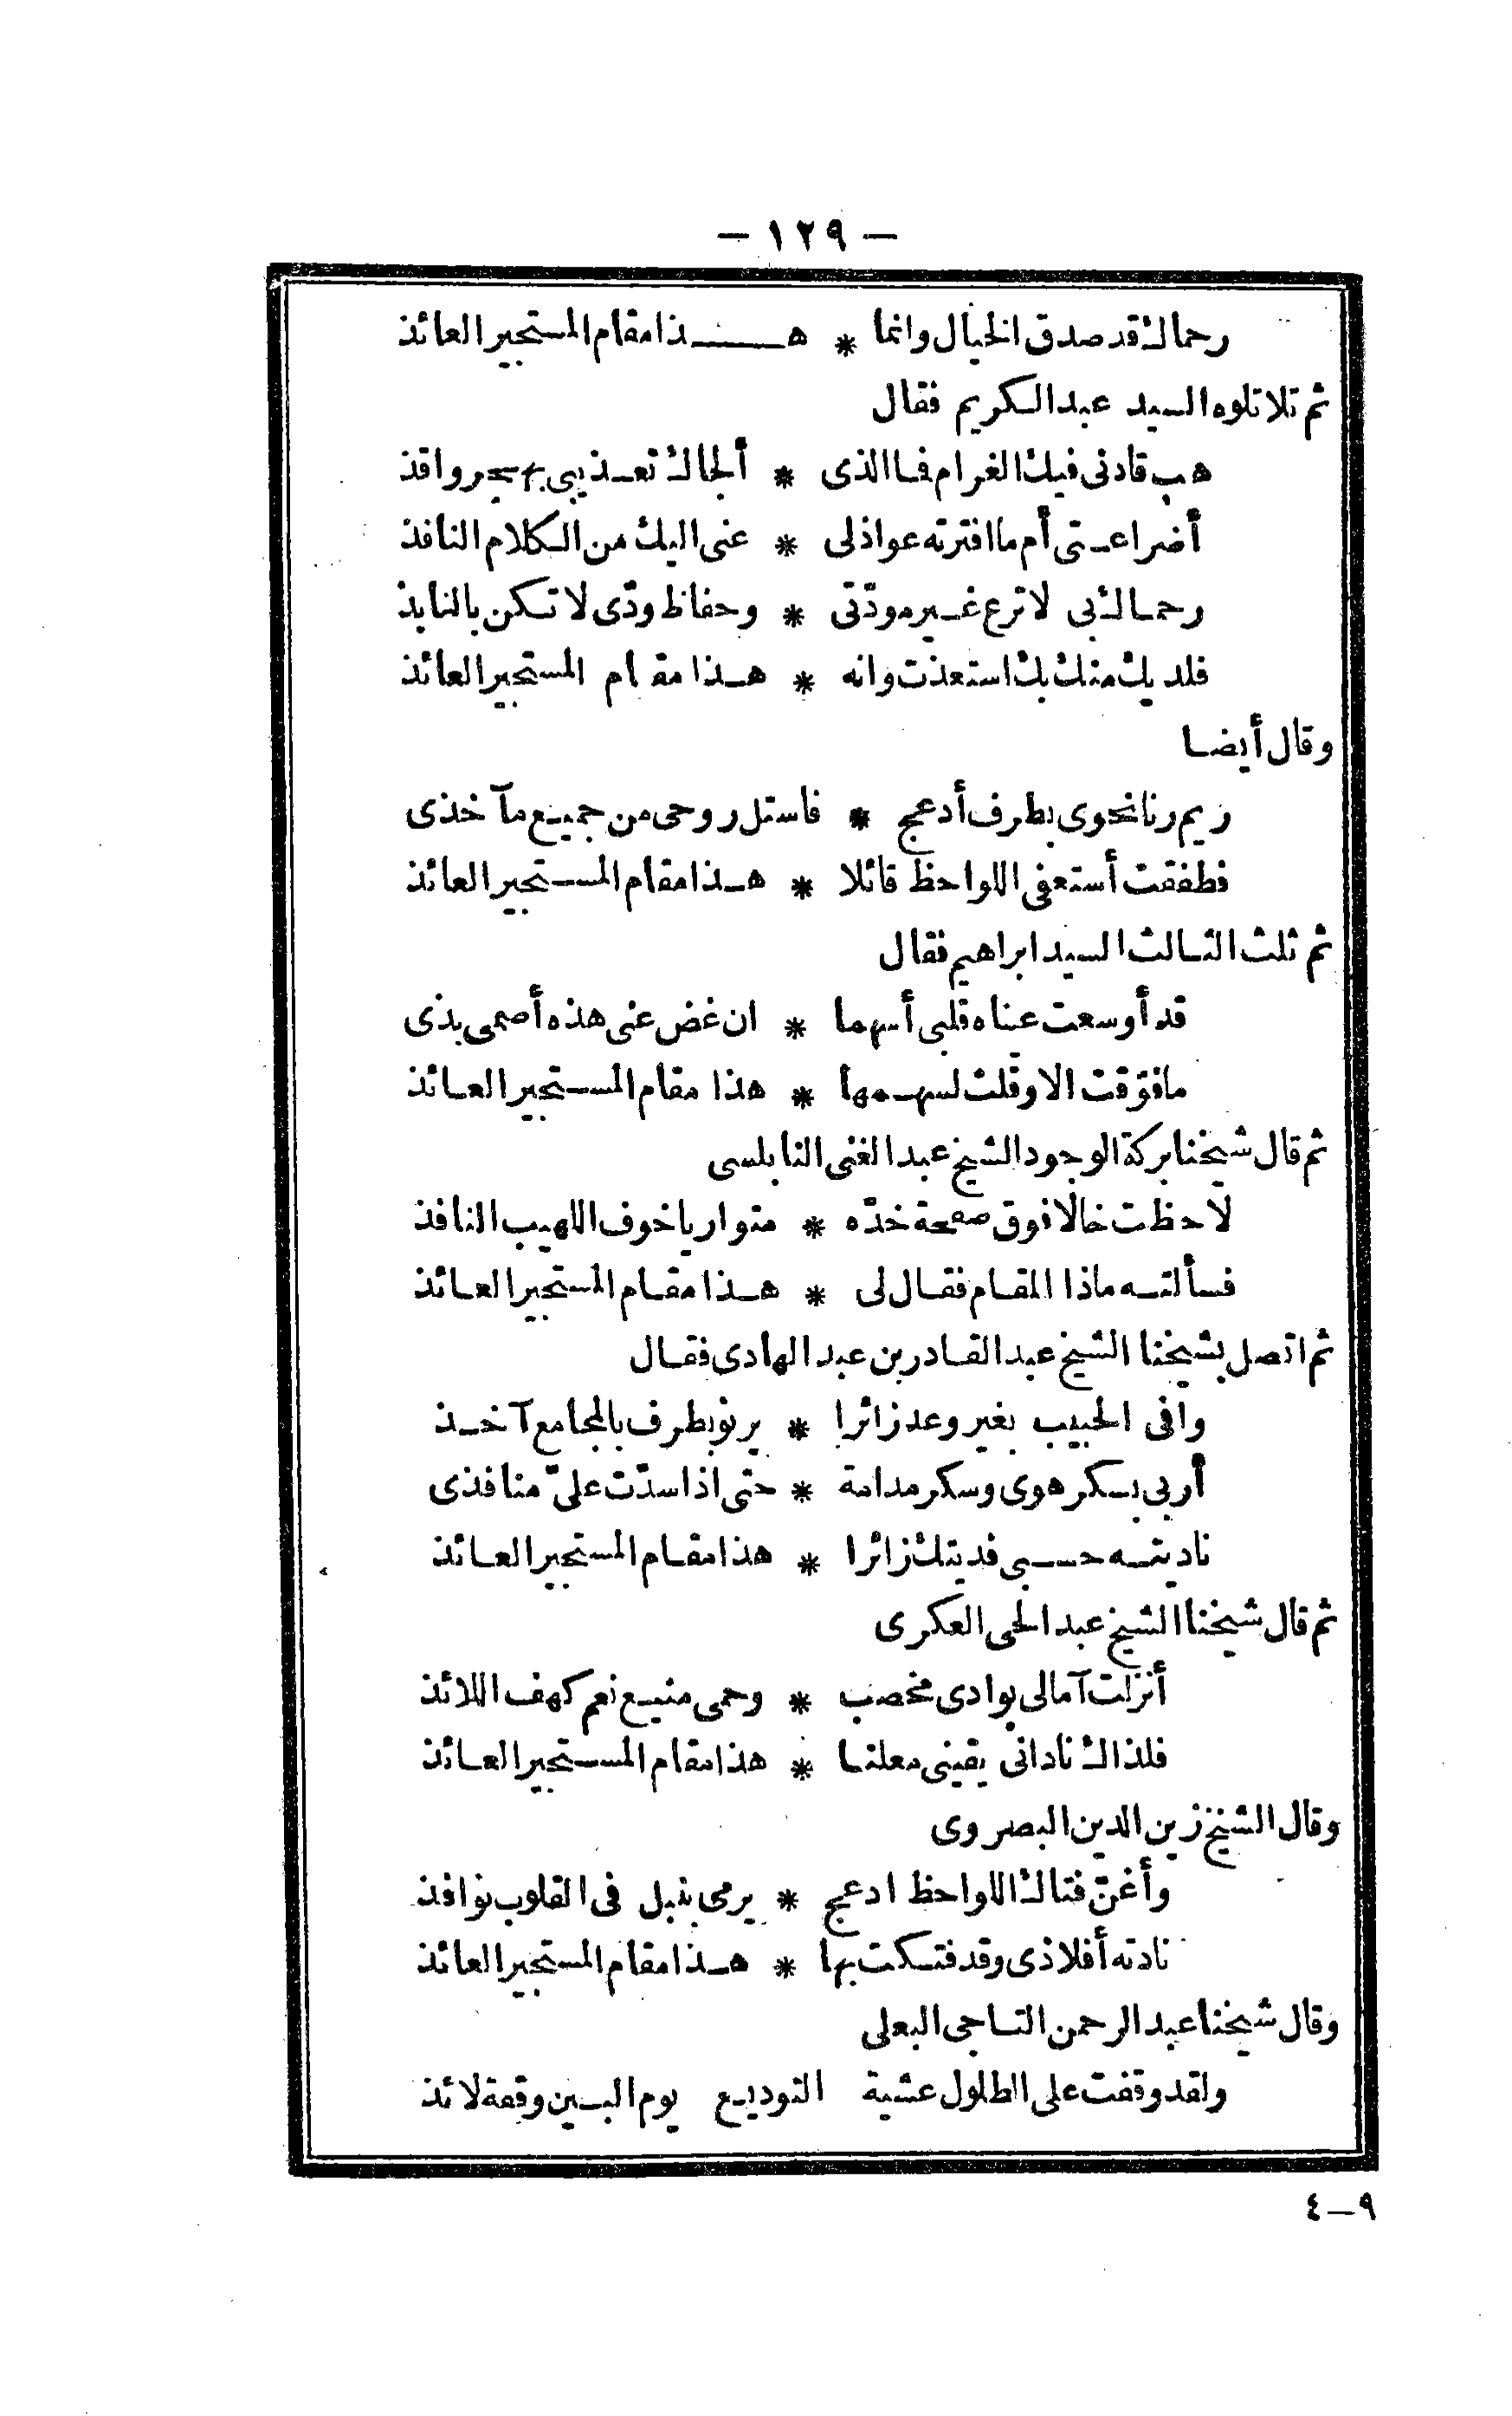 — ١٢٩ —
رحماك قد صدق الخيال وانما * هذا مقام المستجير العائذ
ثم تلا تلوه السيد عبد الكريم فقال
هب قادنى فيك الغرام فما الذى * ألجاك تعذيبى بهجر واقذ
أضراعتى أم ما افترته عواذلى * عنى اليك من الكلام النافذ
رحماك بى لا ترع غير مودّتى * وحفاظ ودّى لا تكن بالنابذ
فلديك منك بك استعذت وانه * هذا مقام المستجير العائذ
وقال أيضا
ريم رنا نحوى بطرف أدعج * فاستل روحى من جميع مآخذى
فطفقت أستعفى اللواحظ قائلا * هذا مقام المستجير العائذ
ثم ثلث الثالث السيد ابراهيم فقال
قد أوسعت عيناه قلبى أسهما * ان غض عنى هذه أصمى بذى
ما فوّقت الا وقلت لسهمها * هذا مقام المستجير العائذ
ثم قال شيخنا بركة الوجود الشيخ عبد الغنى النابلسى
لاحظت خالا فوق صفحة خدّه * متواريا خوف اللهيب النافذ
فسألته ماذا المقام فقال لى * هذا مقام المستجير العائذ
ثم اتصل بشيخنا الشيخ عبد القادر بن عبد الهادى فقال
وافى الحبيب بغير وعد زائرا * يرنو بطرف بالمجامع آخذ
أربى بسكر هوى وسكر مدامة * حتى اذا سدّت علىّ منافذى
ناديته حسبى فديتك زائرا * هذا مقام المستجير العائذ
ثم قال شيخنا الشيخ عبد الحى العكرى
أنزلت آمالى بوادى مخصب * وحمى منيع نعم كهف اللائذ
فلذاك نادانى يقينى معلنا * هذا مقام المستجير العائذ
وقال الشيخ زين الدين البصروى
وأغنّ فتاك اللواحظ ادعج * يرمى بنبل فى القلوب نوافذ
نادته أفلاذى وقد فتكت بها * هذا مقام المستجير العائذ
وقال شيخنا عبد الرحمن التاجى البعلى
ولقد وقفت على الطلول عشية التوديع يوم البين وقفة لائذ
٩ — ٤